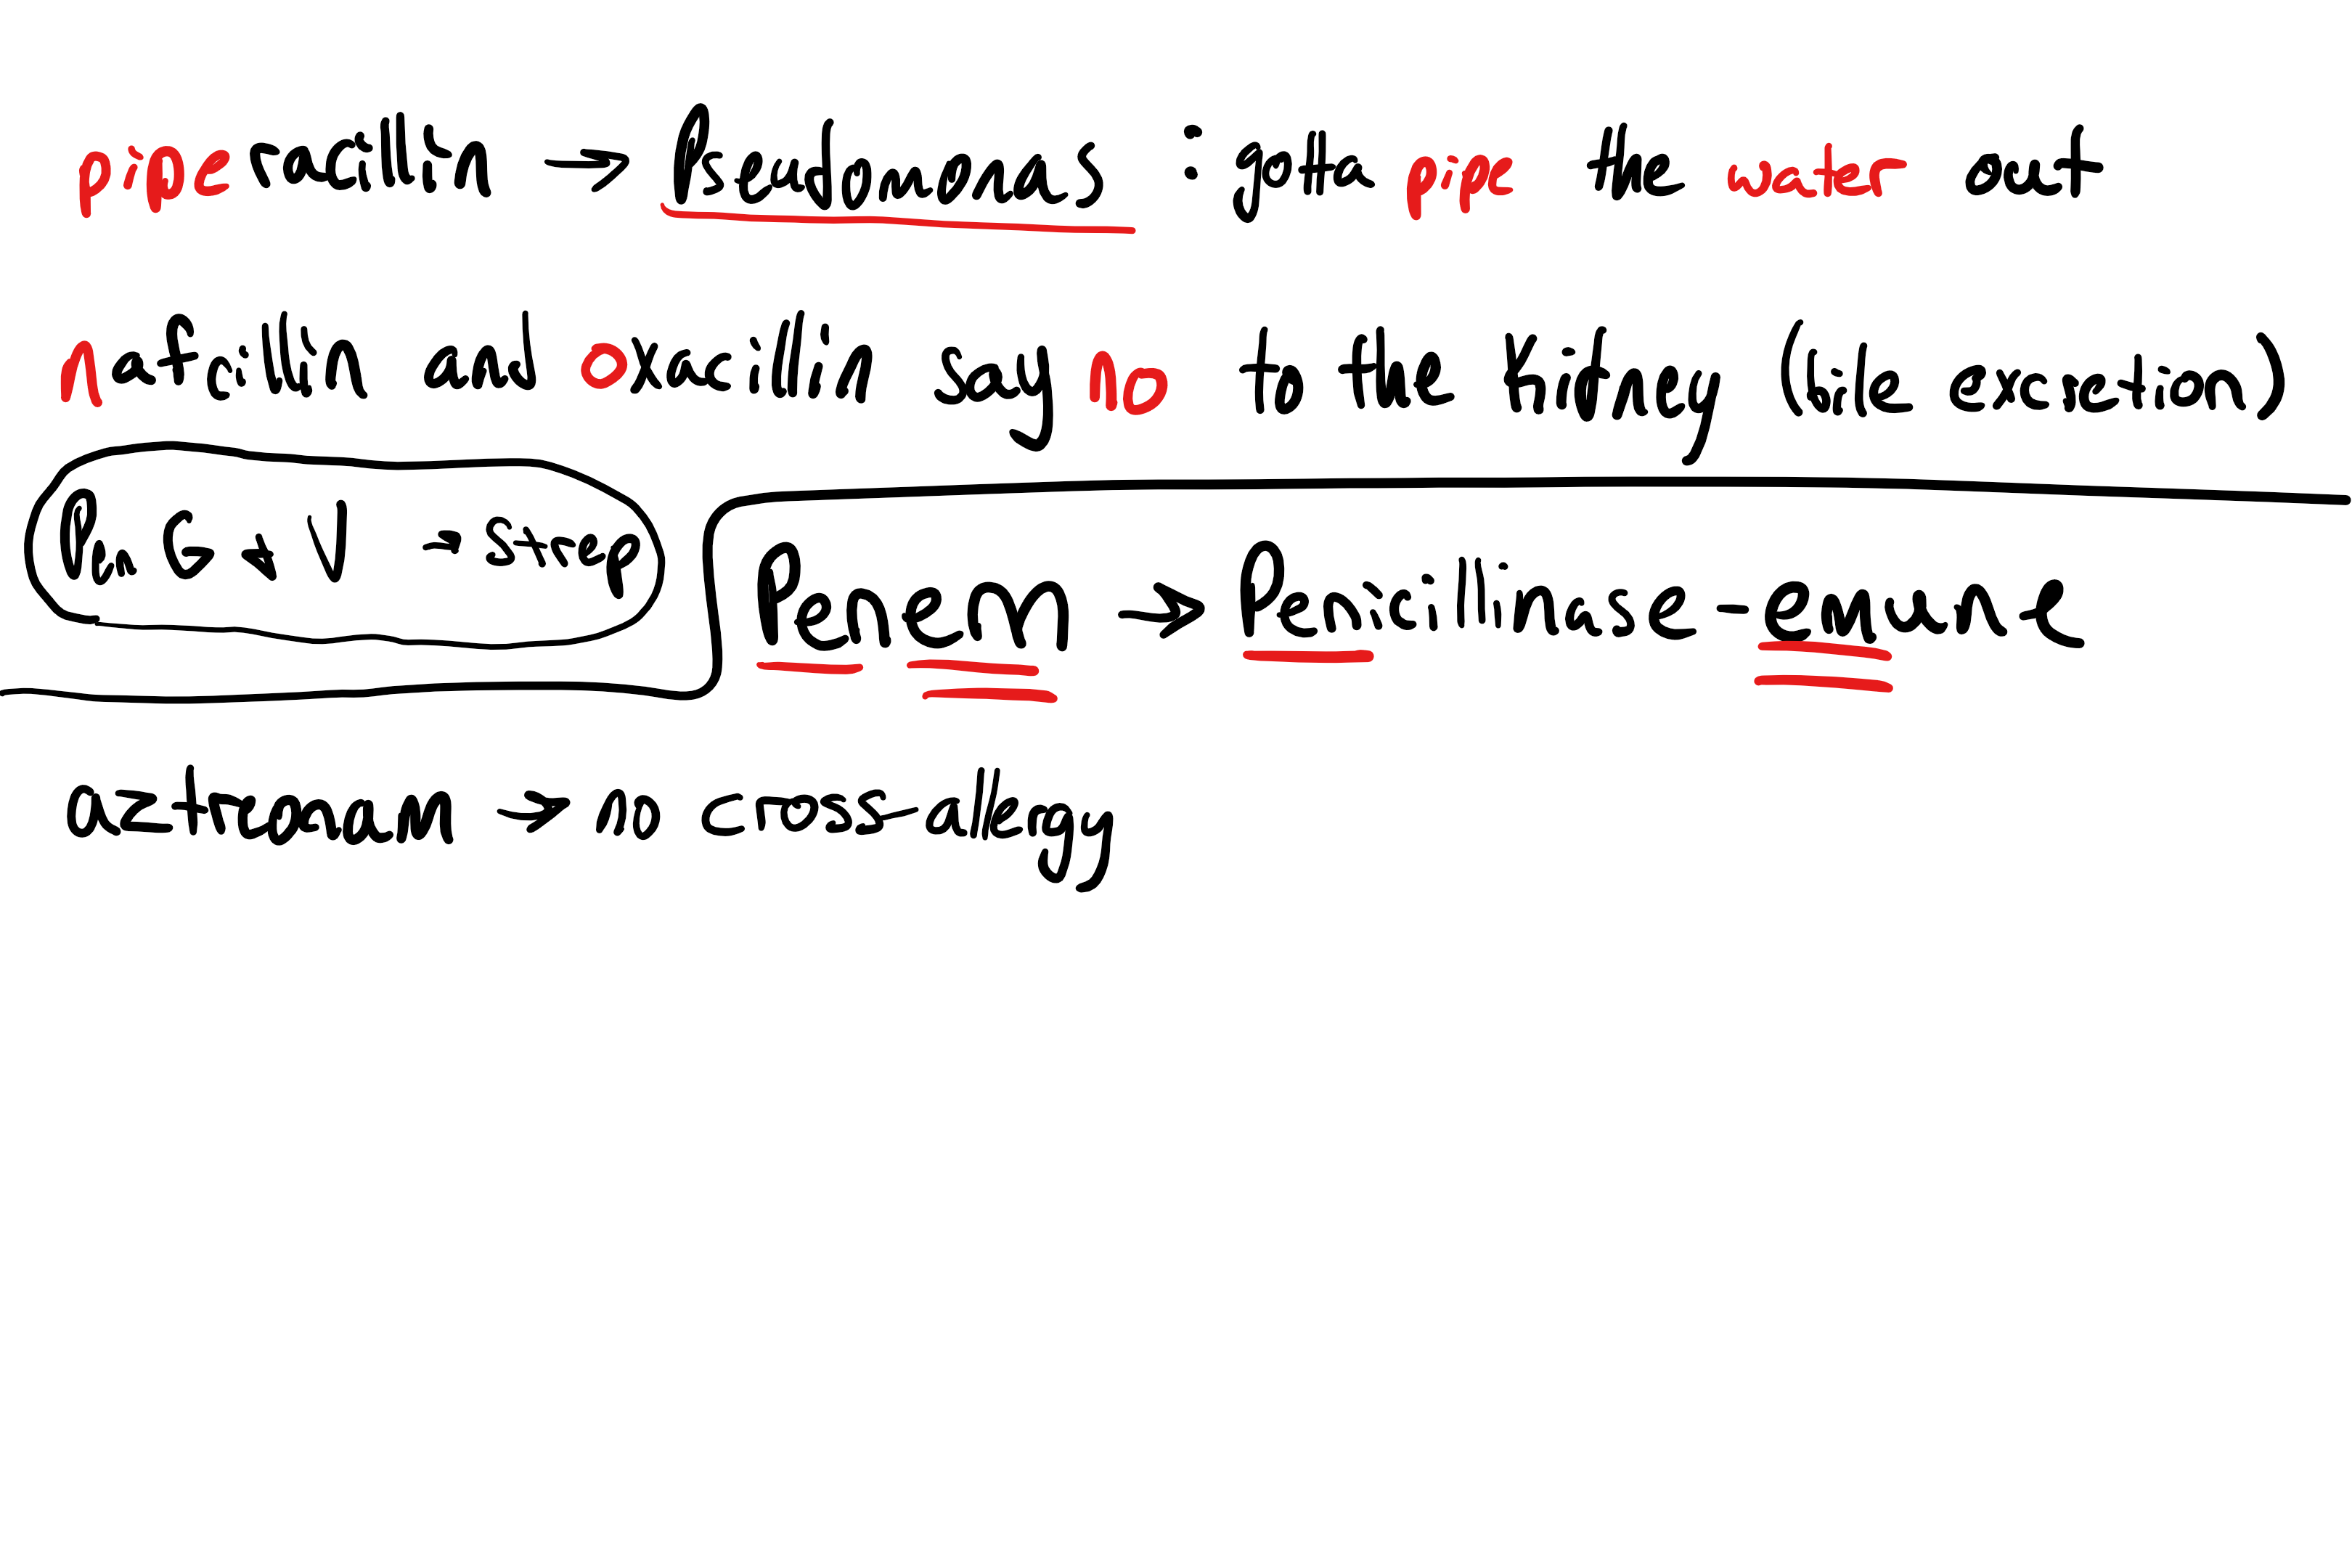 piperacillin → Pseudomonas : gotta pipe the water out
nafcillin and oxacillin say no to the kidney (bile excretion)
Pen G + V → strep
Penem → Penicillinase-emune
aztreonam → no cross-allergy